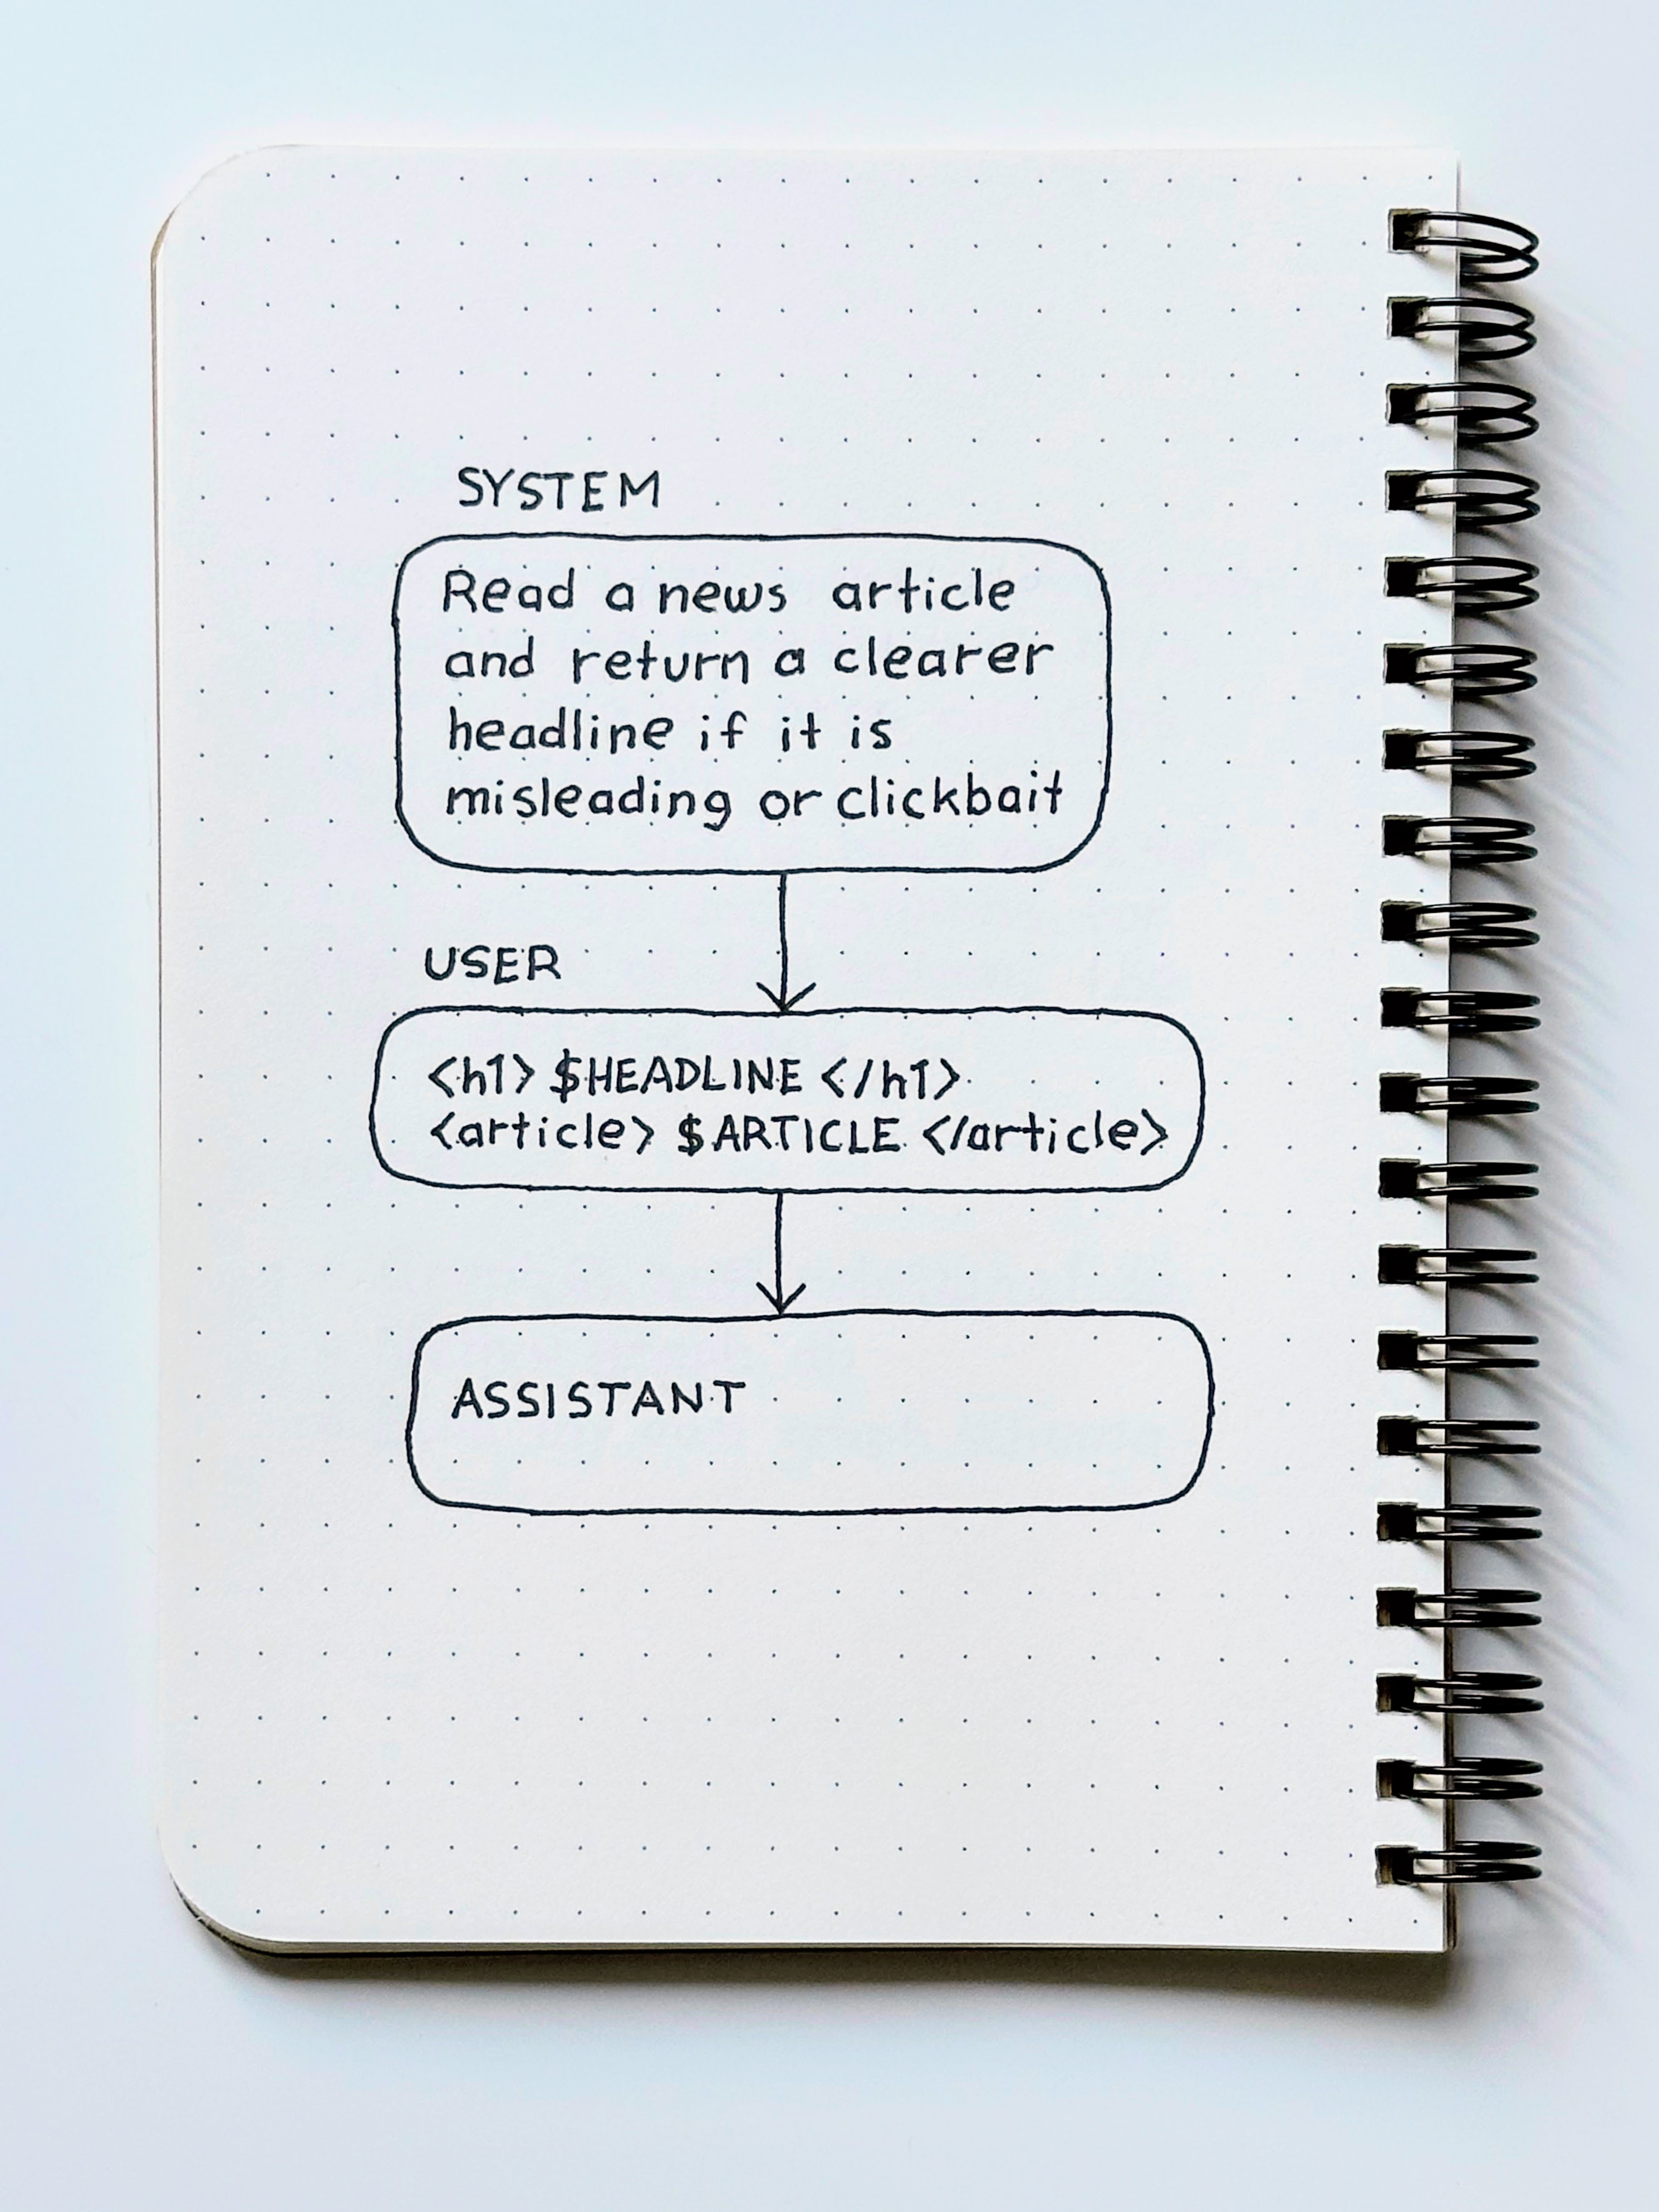 SYSTEM
Read a news article
and return a clearer
headline if it is
misleading or clickbait
USER
<h1> $HEADLINE </h1>
<article> $ARTICLE </article>
ASSISTANT